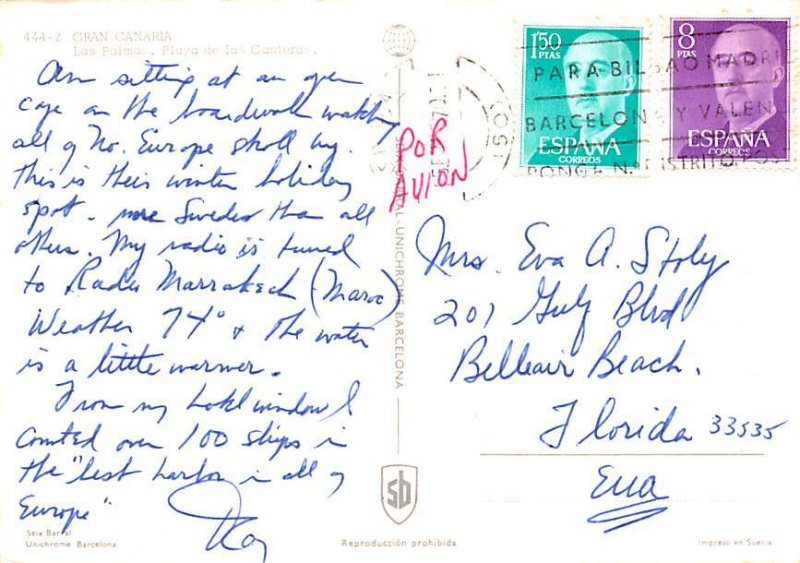 444-2 GRAN CANARIA
Las Palmas. Playa de las Canteras.
Am sitting at an open
cafe on the boardwalk watching
all of No. Europe stroll by.
This is their winter holiday
spot - more Swedes than all
others. My radio is tuned
to Radio Marrakech (Maroc)
Weather 74° & the water
is a little warmer.
From my hotel window I
counted over 100 ships in
the "best harbor in all of
Europe"
Ray
Seix Barral
Unichrome Barcelona
POR
AVION
SEIX BARRAL-UNICHROME BARCELONA
sb
Reproducción prohibida
1'50
PTAS
ESPAÑA
CORREOS
8
PTAS
ESPAÑA
CORREOS
PARA BILBAO MADRI
BARCELONA Y VALEN
PONGA N.º DISTRITO POS
Mrs. Eva A. Stoly
201 Gulf Blvd
Belleair Beach.
Florida 33535
EUA
Impreso en Suecia